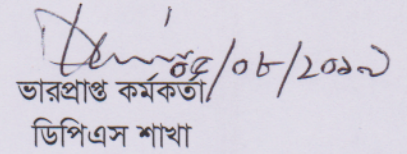 ০৫/০৮/২০১৯
ভারপ্রাপ্ত কর্মকর্তা
ডিপিএস শাখা